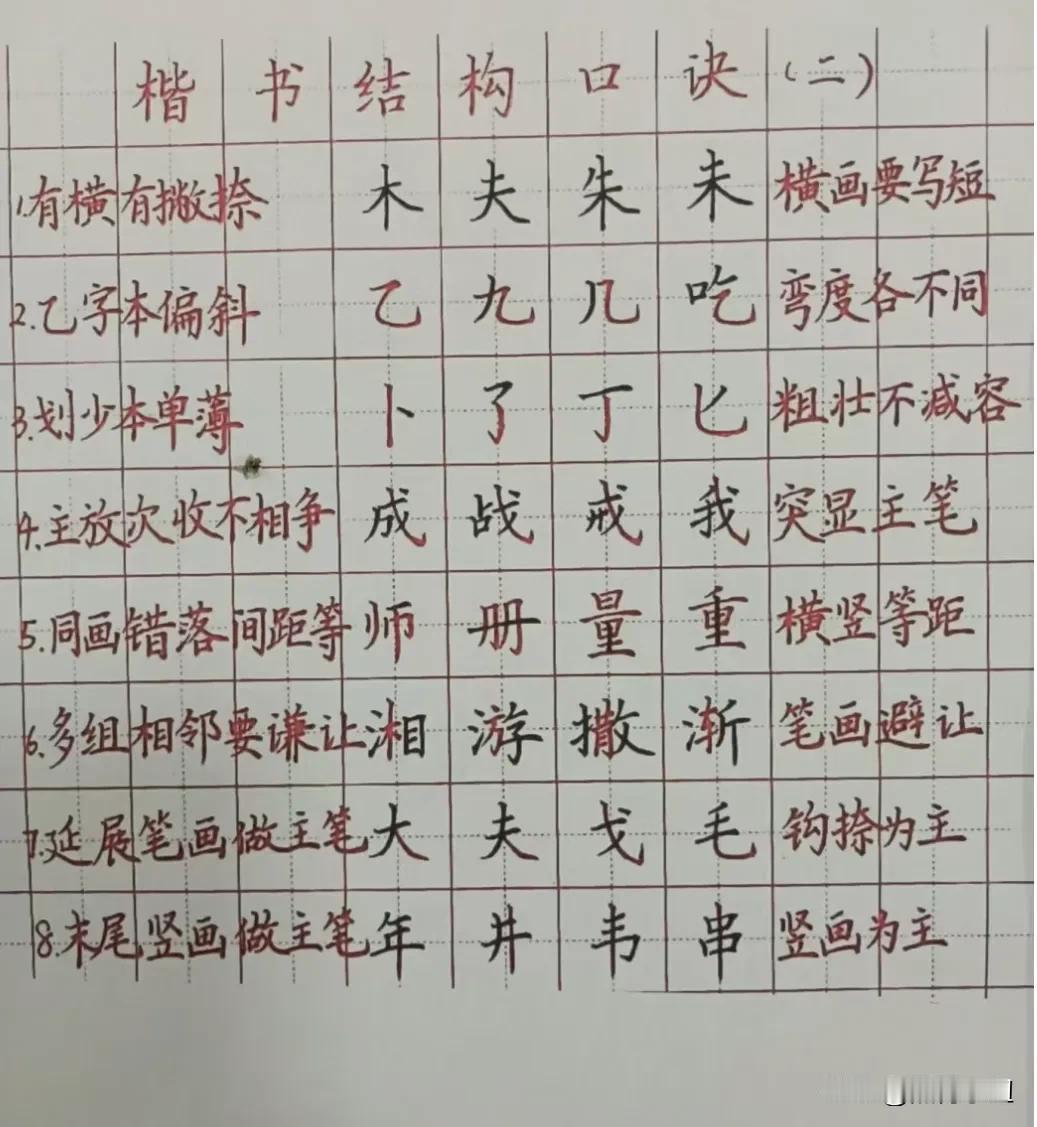 楷书结构口诀(二)
1.有横有撇捺 木夫朱未 横画要写短
2.乙字本偏斜 乙九几吃 弯度各不同
3.划少本单薄 卜了丁匕 粗壮不减容
4.主放次收不相争 成战戒我 突显主笔
5.同画错落间距等 师册量重 横竖等距
6.多组相邻要谦让 湘游撒渐 笔画避让
7.延展笔画做主笔 大夫戈毛 钩捺为主
8.末尾竖画做主笔 年井韦串 竖画为主